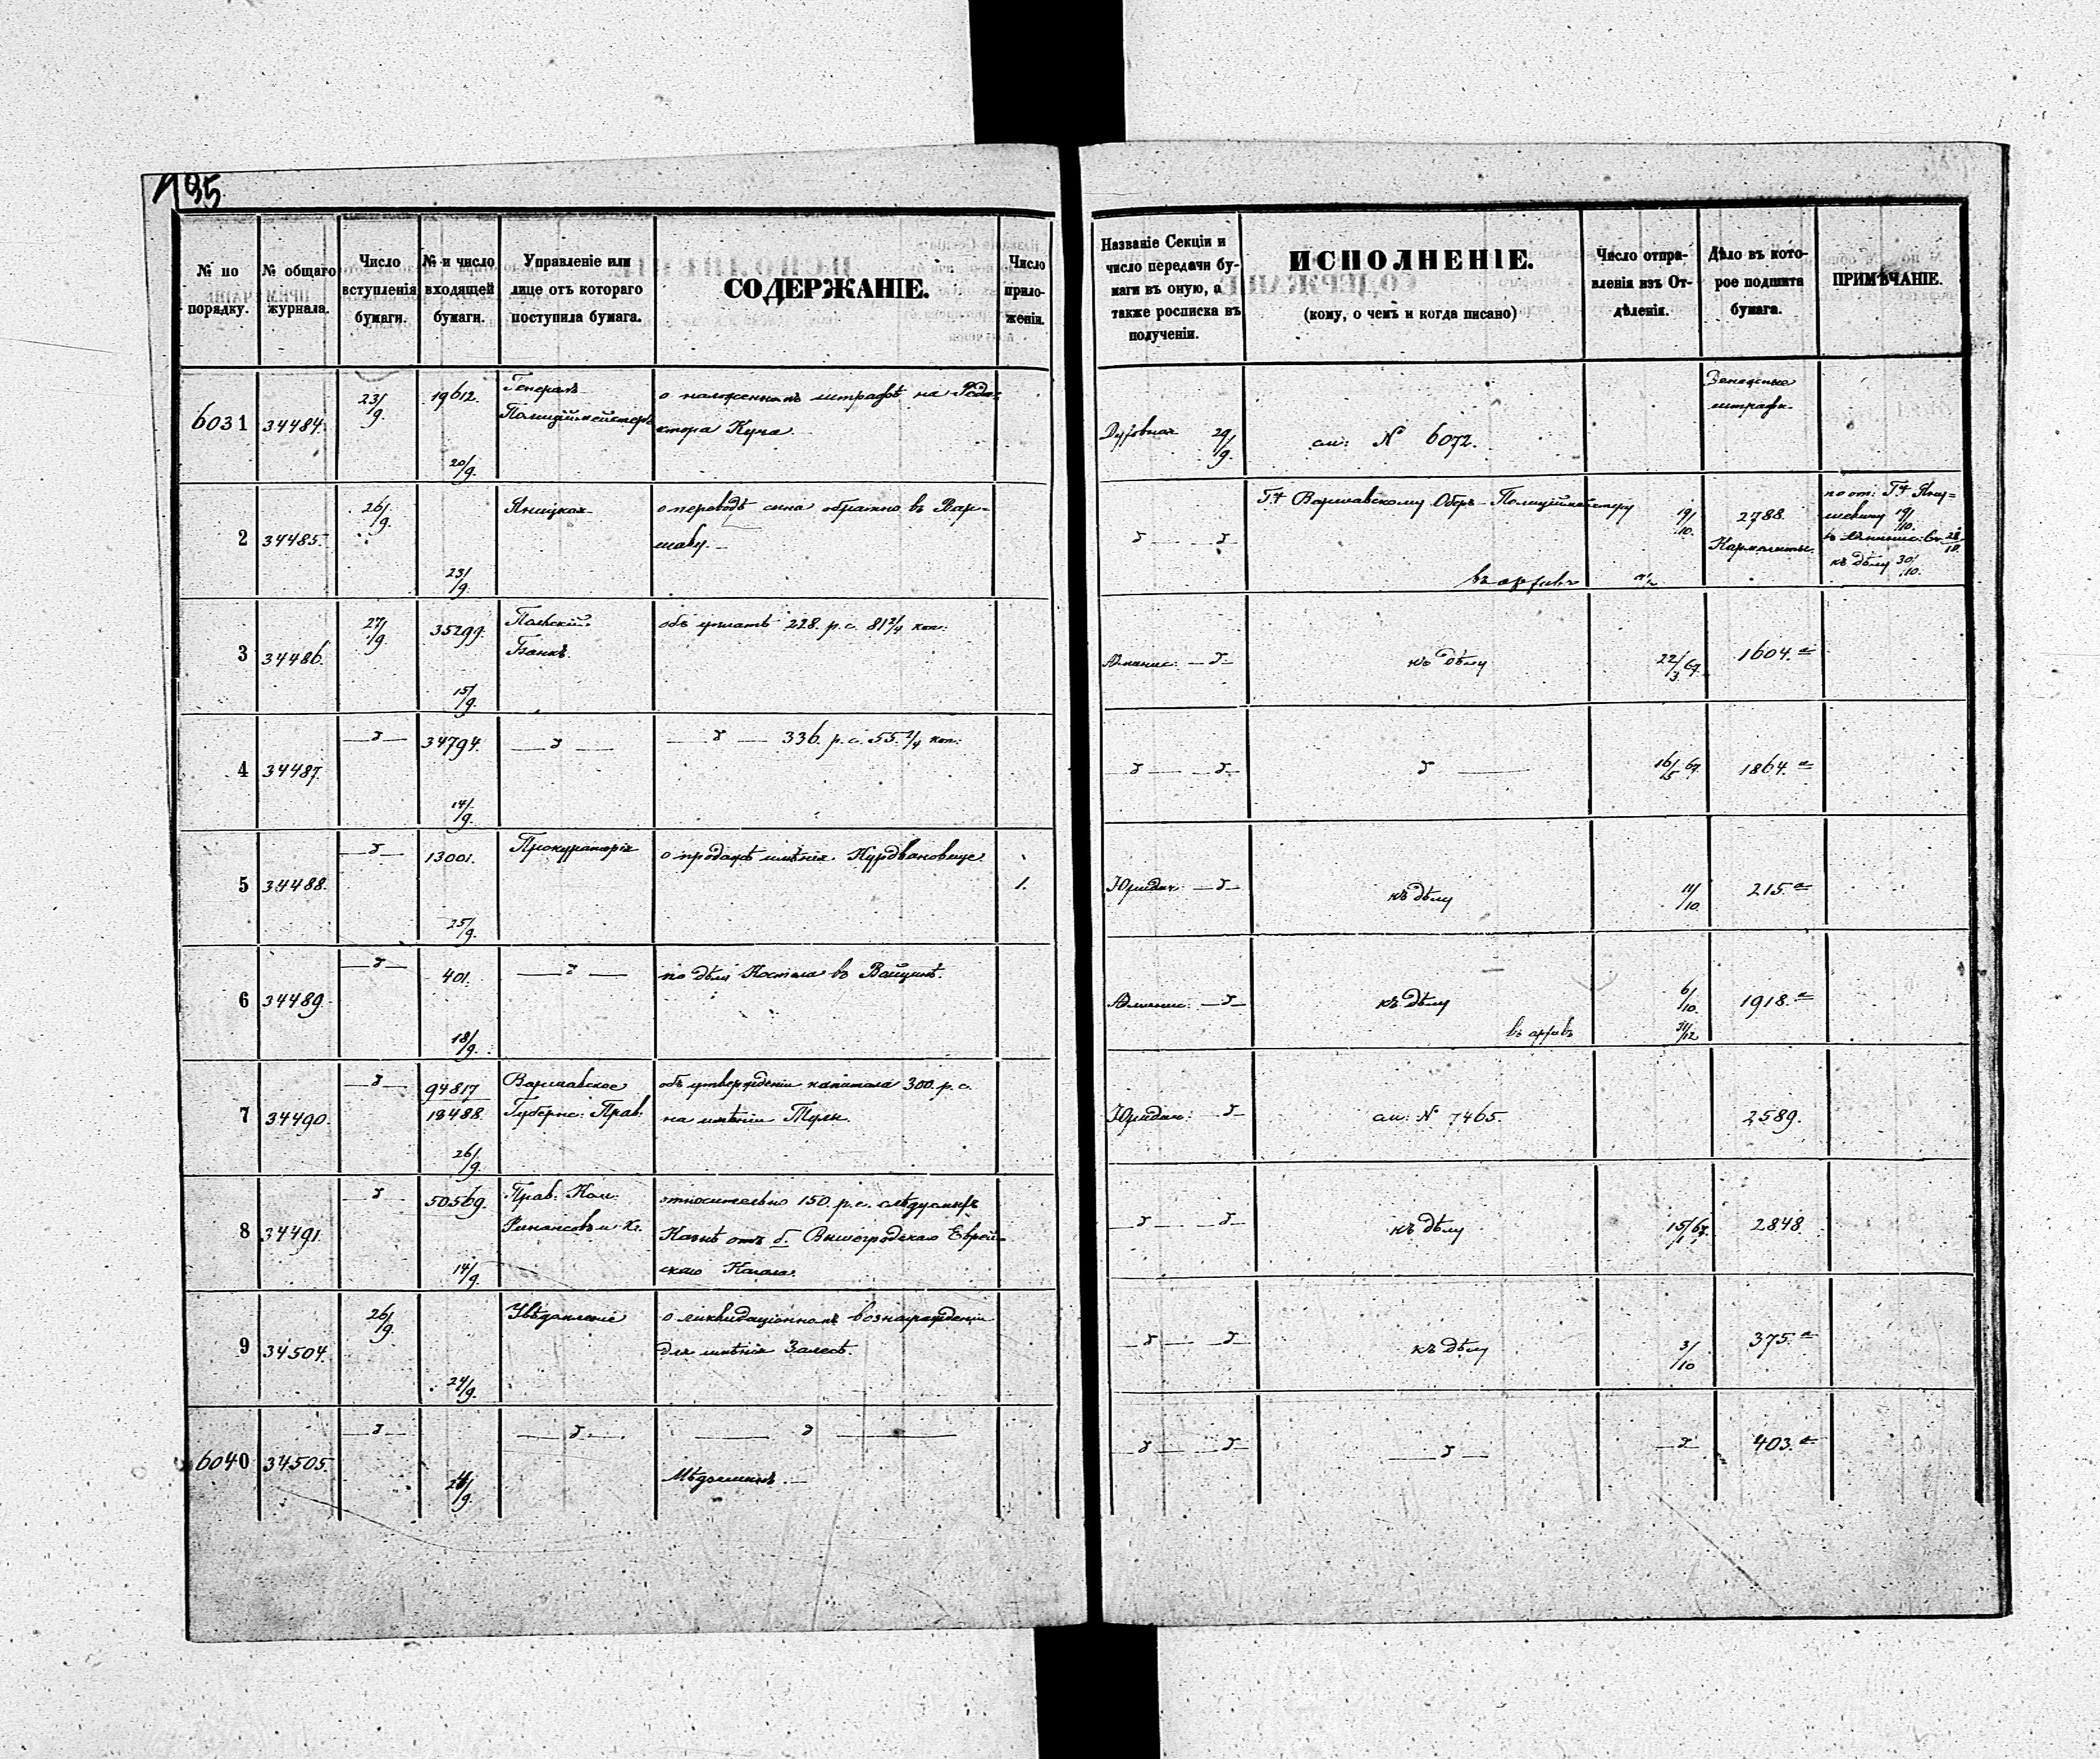 195
№ по порядку.
№ общаго журнала.
Число вступленія бумаги.
№ и число входящей бумаги.
Управленіе или лице отъ котораго поступила бумага.
СОДЕРЖАНІЕ.
Число приложеній.
Названіе Секціи и число передачи бумаги въ оную, а также росписка въ полученіи.
ИСПОЛНЕНІЕ.
(кому, о чемъ и когда писано)
Число отправленія изъ Отдѣленія.
Дѣло въ которое подшита бумага.
ПРИМѢЧАНІЕ.
6031 34484. 23/9. 19612. 20/9.
Генералъ
Полицiймейстеръ
о наложенномъ штрафѣ на Редак-
тора Куча
Духовная 29/9.
см: № 6072.
Денежные
штрафы
2 34485. 26/9. 23/9.
Яницкая
о переводѣ сына обратно въ Вар-
шаву.
Г.+ Варшавскому Оберъ-Полицiймейстеру
въ архивъ
19/10.
2788.
Кармелиты
къ дѣлу 30/10.
3 34486. 27/9. 35299. 15/9.
Польскій
Банкъ.
объ уплатѣ 228. р. с. 81 2/4 коп:
къ дѣлу
22/3 67.
1604. а
4 34487. 34794. 14/9.
336. р. с. 55. 2/4 коп:
16/5 67.
1864. а
5 34488. 13001. 25/9.
Прокураторія
о продажѣ имѣнія Курдвановице.
1.
Юридич:
къ дѣлу
11/10.
215. а
6 34489. 401. 18/9.
по дѣлу Костела въ Войцинѣ.
къ дѣлу
въ архивъ
6/10.
31/12
1918. а
7 34490. 94817
18488. 26/9.
Варшавское
Губернс: Прав:
объ утвержденіи капитала 300. р. с.
на имѣніи Тули.
Юридич:
см: № 7465.
2589.
8 34491. 50569. 14/9.
Прав: Ком:
Финансовъ и К.
относительно 150. р. с. слѣдуемыхъ
Казнѣ отъ б. Вышегродскаго Еврей-
скаго Кагала.
къ дѣлу
15/1 67.
2848.
9 34504. 26/9. 24/9.
Увѣдомленіе
о ликвидаціонномъ вознагражденіи
для имѣнія Залесѣ.
къ дѣлу
3/10
375. а
6040 34505.
403. а